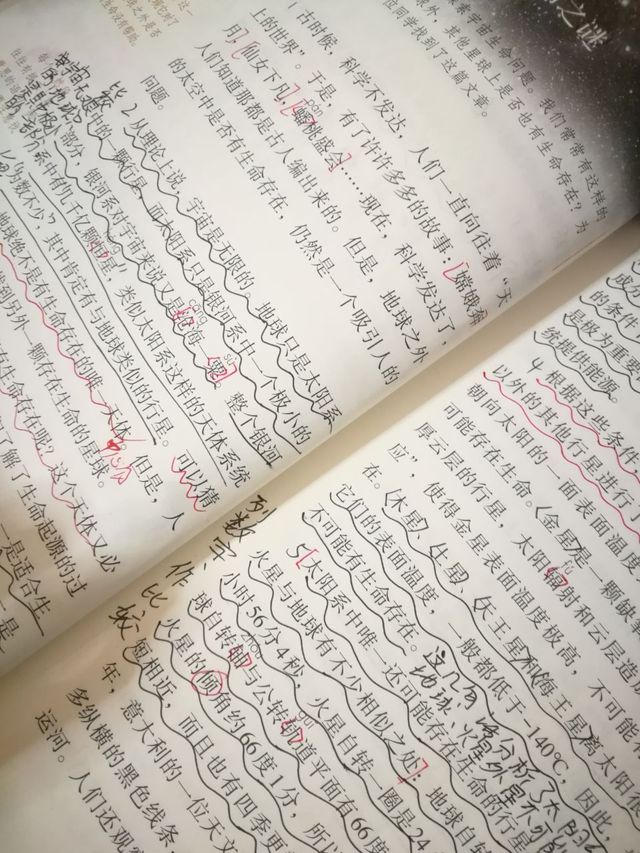 之谜
索宇宙生命问题。我们常常有这样的
球外，其他星球上是否也有生命存在？为
位同学找到了这篇文章。
古时候，科学不发达，人们一直向往着“天
上的世界”。于是，有了许许多多的故事：嫦娥奔
月，仙女下凡，蟠桃盛会……现在，科学发达了，
人们知道那都是古人编出来的。但是，地球之外
的太空中是否有生命存在，仍然是一个吸引人的
问题。
2从理论上说，宇宙是无限的。地球只是太阳系
中的一颗行星，而太阳系只是银河系中一个极小的
部分，银河系对宇宙来说又是沧海一粟。整个银河
系中有几千亿颗恒星，类似太阳系这样的天体系统
为数不少，其中肯定有与地球类似的行星。可以猜
地球绝不是有生命存在的唯一天体。但是，人
到另外一颗存在生命的星球。
有生命存在呢？这个天体又必
了解了生命起源的过
一是适合生
是
的条
是极为重要
统提供能源
4根据这些条件
以外的其他行星进行
朝向太阳的一面表面温度
可能存在生命。金星是一颗缺
厚云层的行星，太阳辐射和云层造
应”，使得金星表面温度极高，不可能
在。木星、土星、天王星和海王星离太阳
它们的表面温度，一般都低于-140℃，因此，
不可能有生命存在。
5太阳系中唯一还可能存在生命的行星
火星与地球有不少相似之处，地球自转
小时56分4秒，火星自转一圈是24
球自转轴与公转轨道平面有66度
火星的倾角约66度1分，所以
想相近，而且也有四季更
年，意大利的一位天文
多纵横的黑色线条，
运河。人们还观察
列数字、作比较